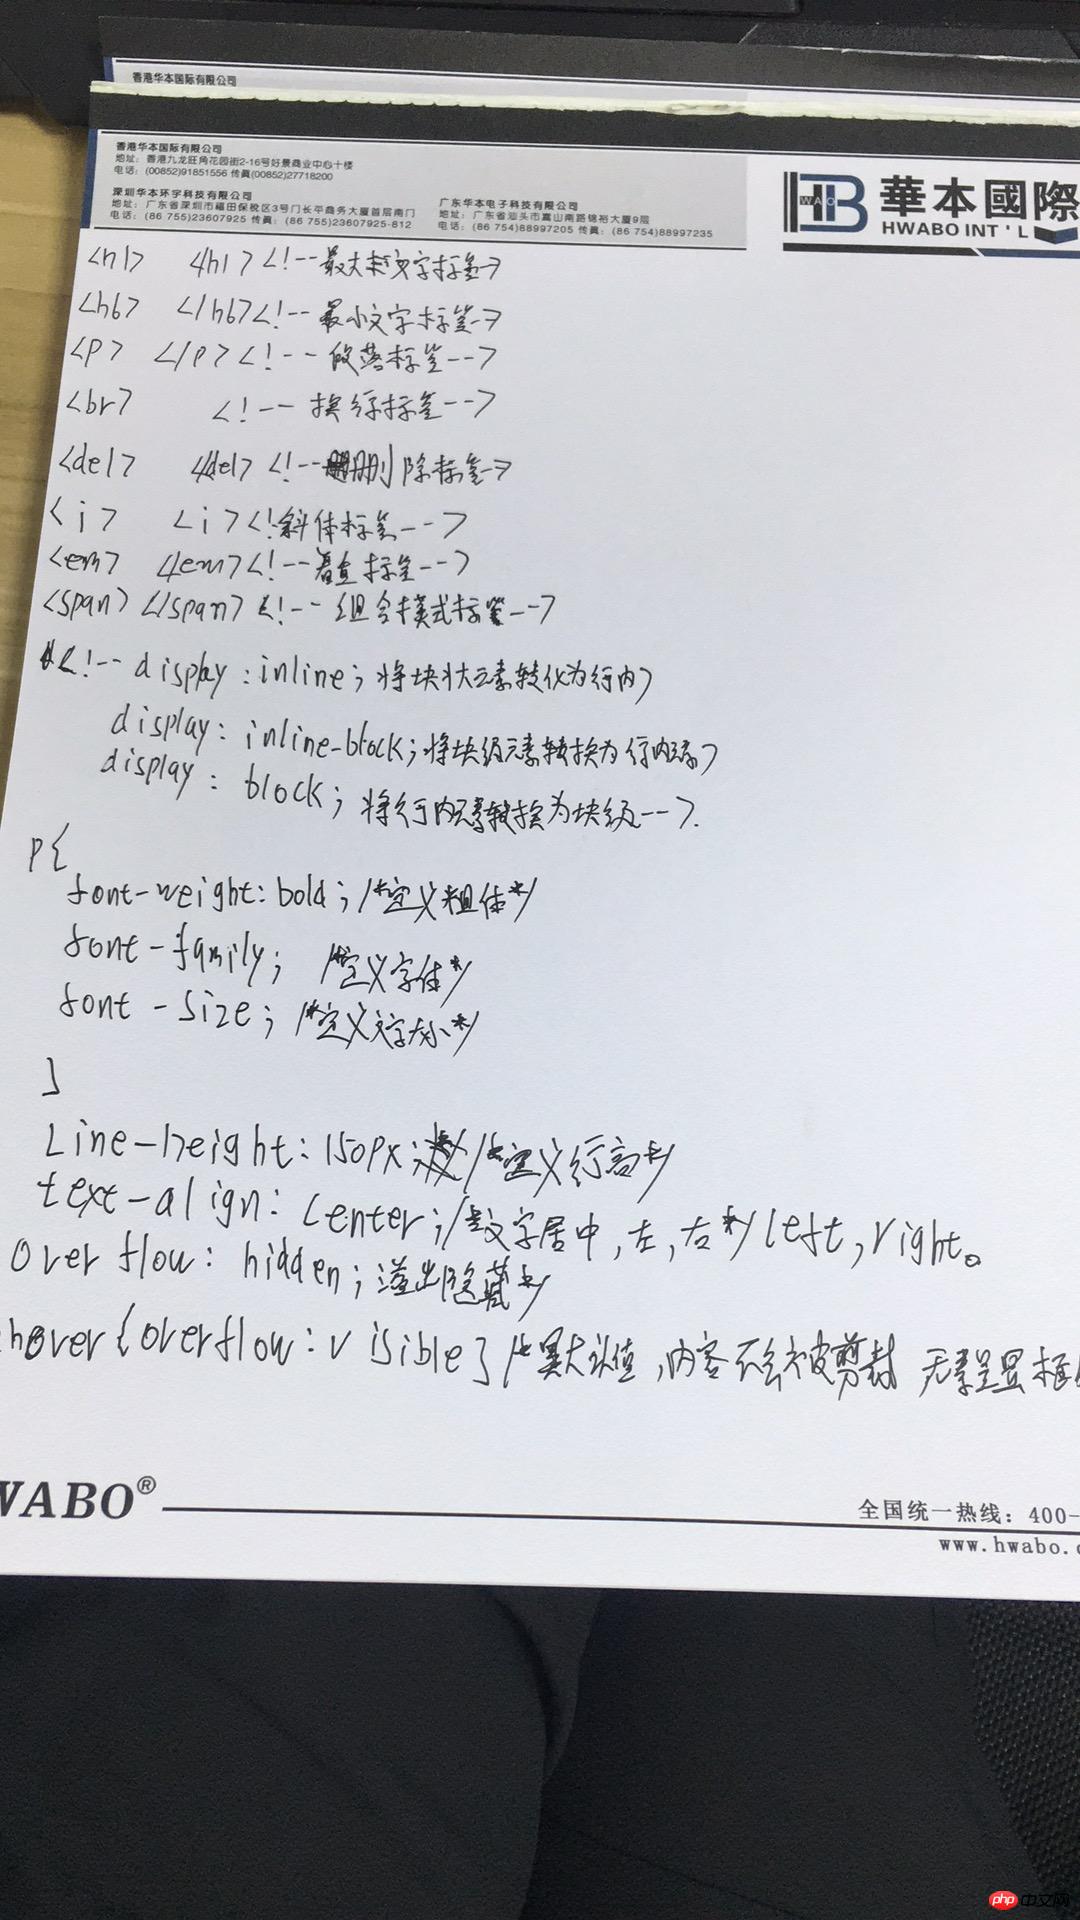 香港华本国际有限公司
香港华本国际有限公司
地址：香港九龙旺角花园街2-16号好景商业中心十楼
电话：(00852)91851556 传真(00852)27718200
深圳华本环宇科技有限公司
地址：广东省深圳市福田保税区3号门长平商务大厦首层南门
电话：(86 755)23607925 传真：(86 755)23607925-812
广东华本电子科技有限公司
地址：广东省汕头市嵩山南路锦裕大厦9层
电话：(86 754)88997205 传真：(86 754)88997235
HB
WABO
華本國際
HWABO INT'L
<h1> </h1> <!--最大文字标签-->
<h6> </h6> <!--最小文字标签-->
<p> </p> <!--段落标签-->
<br> <!--换行标签-->
<del> </del> <!--删除标签-->
<i> <i> <!斜体标签-->
<em> </em> <!--着重标签-->
<span> </span> <!--组合模式标签-->
<!-- display:inline; 将块状元素转化为行内>
display: inline-block; 将块级元素转换为行内>
display: block; 将行内元素转换为块级-->.
p{
font-weight: bold; /*定义粗体*/
font-family; /*定义字体*/
font-size; /*定义文字大小*/
}
Line-height: 150px; /*定义行高*/
text-align: center; /*文字居中,左,右*/ left, right。
Overflow: hidden; 溢出隐藏*/
hover{overflow: visible} /*默认值,内容不会被剪裁 元素呈显框
WABO®
全国统一热线：400-
www.hwabo.
php 中文网